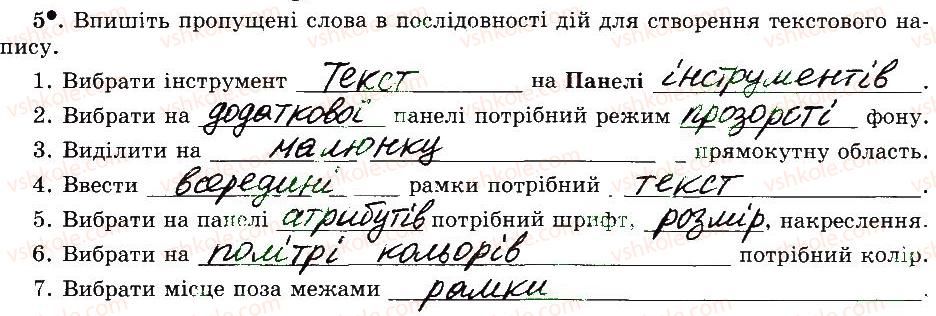 5●. Впишіть пропущені слова в послідовності дій для створення текстового на-
пису.
1. Вибрати інструмент Текст на Панелі інструментів.
2. Вибрати на додаткової панелі потрібний режим прозорості фону.
3. Виділити на малюнку прямокутну область.
4. Ввести всередині рамки потрібний текст.
5. Вибрати на панелі атрибутів потрібний шрифт, розмір, накреслення.
6. Вибрати на політрі кольорів потрібний колір.
7. Вибрати місце поза межами рамки.